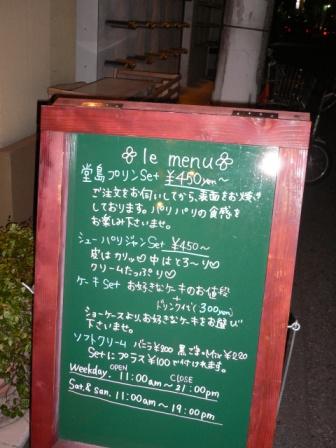 le menu
堂島プリンSet ¥450yen〜
ご注文をお伺いしてから、表面をお焼き
しております。パリパリの食感を
お楽しみ下さいませ。
シューパリジャンSet ¥450〜
皮はカリッ♡中はとろ〜り♡
クリームたっぷり♡
ケーキSet お好きなケーキのお値段
+
ドリンク代で(300yen)
ショーケースより、お好きなケーキをお選び
下さいませ。
ソフトクリーム バニラ¥200 黒ごま・Mix ¥220
Setにプラス¥100で付けれます。
OPEN CLOSE
Weekday. 11:00am〜21:00pm
Sat,& san. 11:00am〜19:00pm